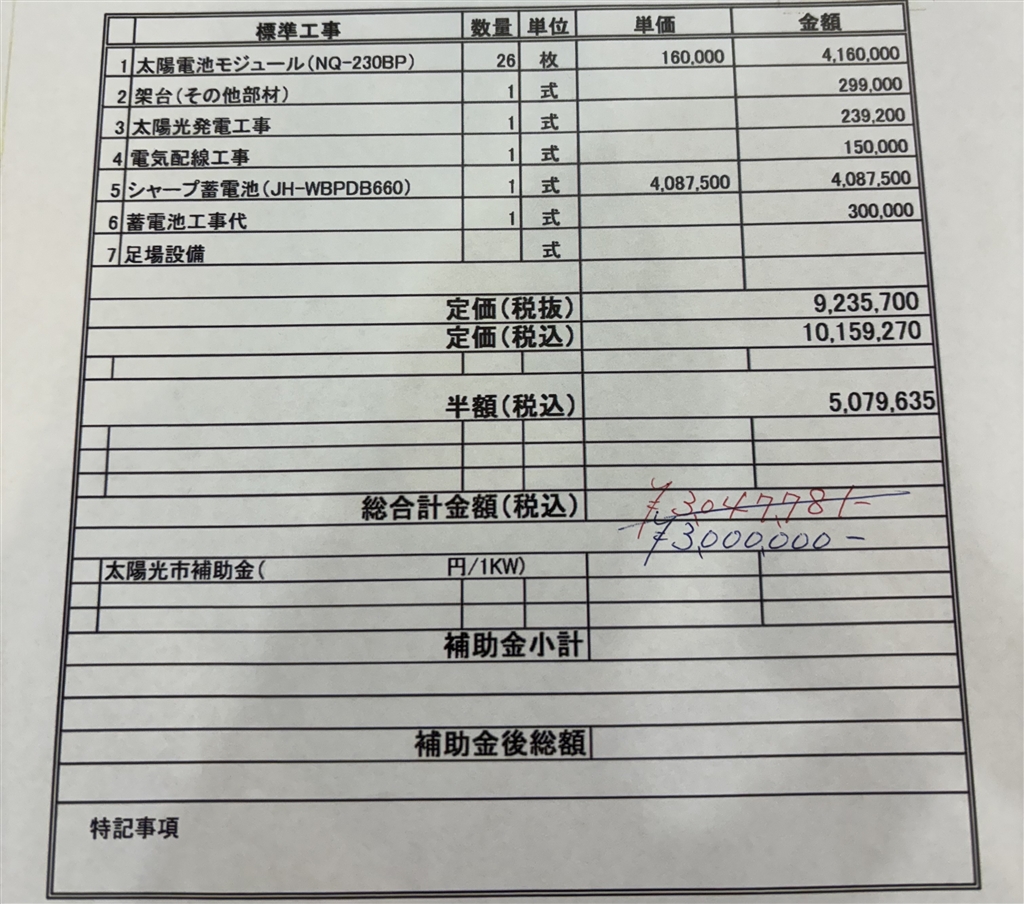 標準工事 数量 単位 単価 金額
1 太陽電池モジュール(NQ-230BP) 26 枚 160,000 4,160,000
2 架台(その他部材) 1 式 299,000
3 太陽光発電工事 1 式 239,200
4 電気配線工事 1 式 150,000
5 シャープ蓄電池(JH-WBPDB660) 1 式 4,087,500 4,087,500
6 蓄電池工事代 1 式 300,000
7 足場設備 式
定価(税抜) 9,235,700
定価(税込) 10,159,270
半額(税込) 5,079,635
総合計金額(税込) ¥3,047,781-
¥3,000,000-
太陽光市補助金( 円/1KW)
補助金小計
補助金後総額
特記事項